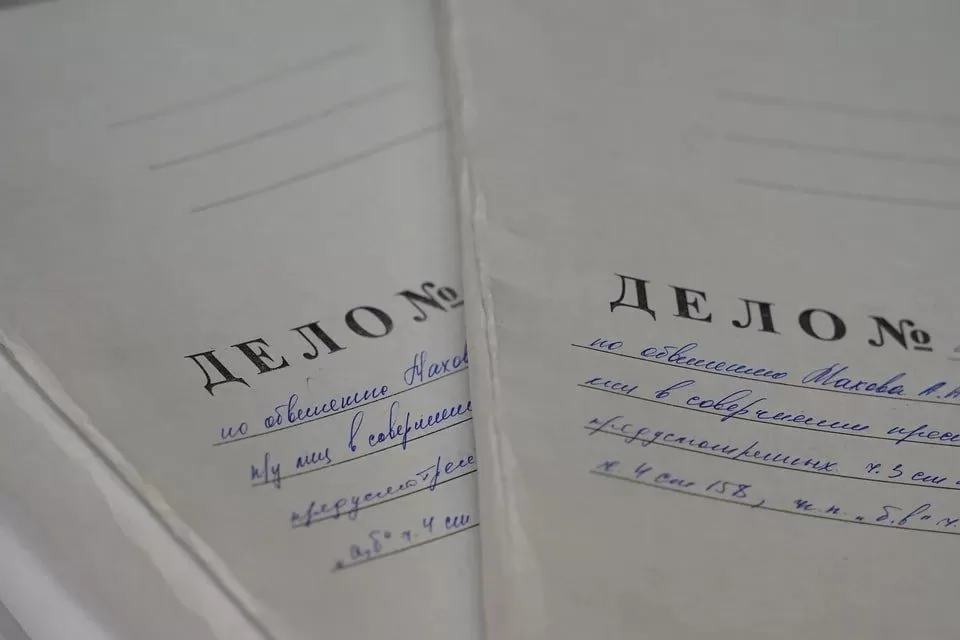 ДЕЛО №
по обвинению Махов
др лиц в совершении
предусмотрен
"а,б" ч.4 ст
ДЕЛО №
по обвинению Махова А.А
лиц в совершении прес
предусмотренных ч.3 ст
ч. 4 ст 158, п.п. "б,в" ч.